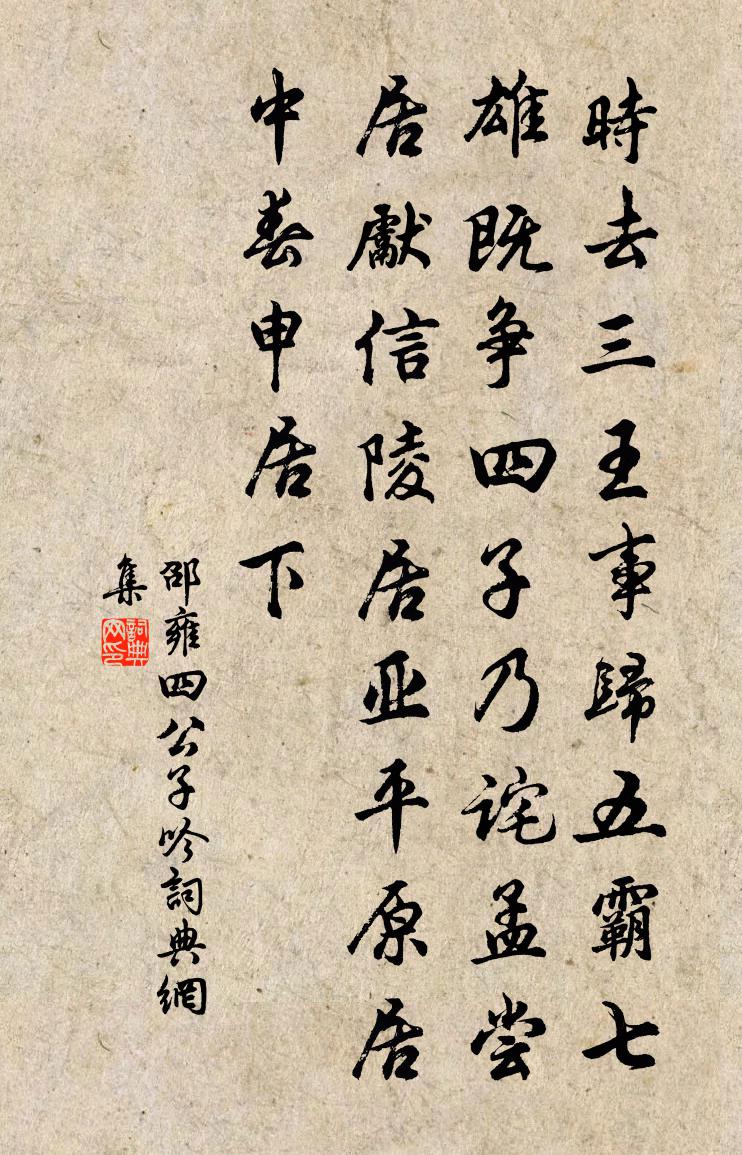 時去三王事歸五霸七
雄既争四子乃詫孟尝
居獻信陵居亚平原居
中春申居下
邵雍四公子吟詞典網
集
詞典
网印